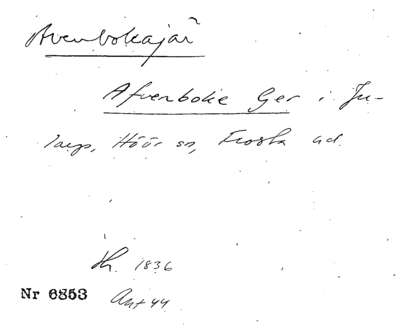 Avenbokajär
Afvenboke Ger i Ju-
larp, Höör sn, Frosta hd.
Sk. 1836
Nr 6853 Akt 44